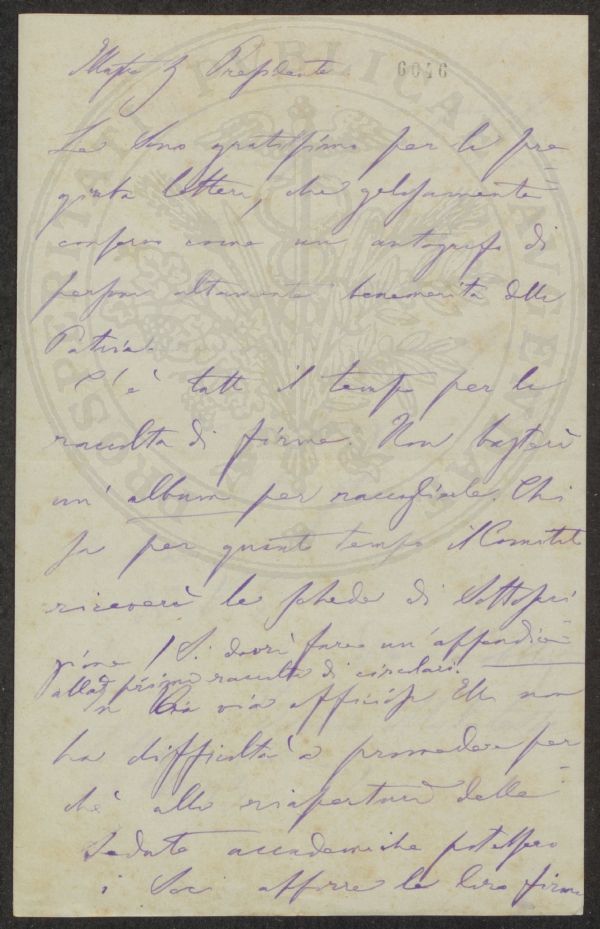 Presidente 6046
Le sono gratissimo per la pre=
giata lettera, che gelosamente
conservo come un autografo di
persona altamente benemerita della
Patria.
C'è tutt il tempo per la
raccolta di firme. Non basterà
un' album per raccoglierle. Chi
sa per quant tempo il Comitat
riceverà le schede di Sottoscri
zione! Si dovrà fare un'appendice
alla prima raccolta di circolari.
via officiosa Ella non
ha difficoltà a provvedere per=
chè alla riapertura delle
Sedute accademiche potessero
i Soci apporre le loro firme
PROSPERITATI PUBLICAE AVGENDAE